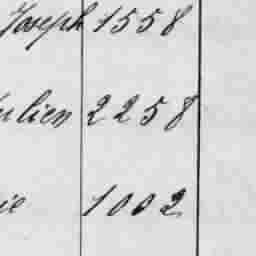 Joseph 1558
ulien 2258
ie 1002